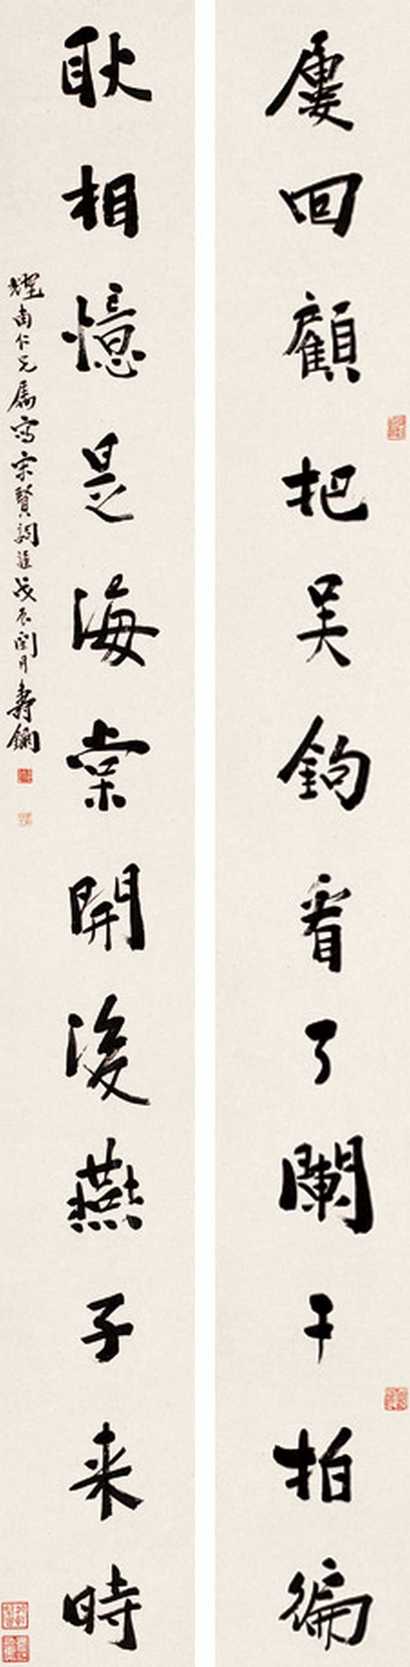 屢回顧把吴鉤看了闌干拍徧
耿相憶是海棠開後燕子来時
耀南仁兄屬寫宋賢詞進戊辰閏月壽鏞